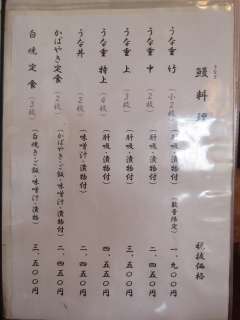 うなぎ
鰻料理
税抜価格
うな重 竹 (小2枚) (肝吸・漬物付) (数量限定) 一、九〇〇円
うな重 中 (2枚) (肝吸・漬物付) 二、四五〇円
うな重 上 (3枚) (肝吸・漬物付) 三、五五〇円
うな重 特上 (4枚) (肝吸・漬物付) 四、五五〇円
うな丼 (2枚) (味噌汁・漬物付) 二、四五〇円
かばやき定食 (2枚) (かばやき・ご飯・味噌汁・漬物) 二、四五〇円
白焼定食 (3枚) (白焼き・ご飯・味噌汁・漬物) 三、五〇〇円